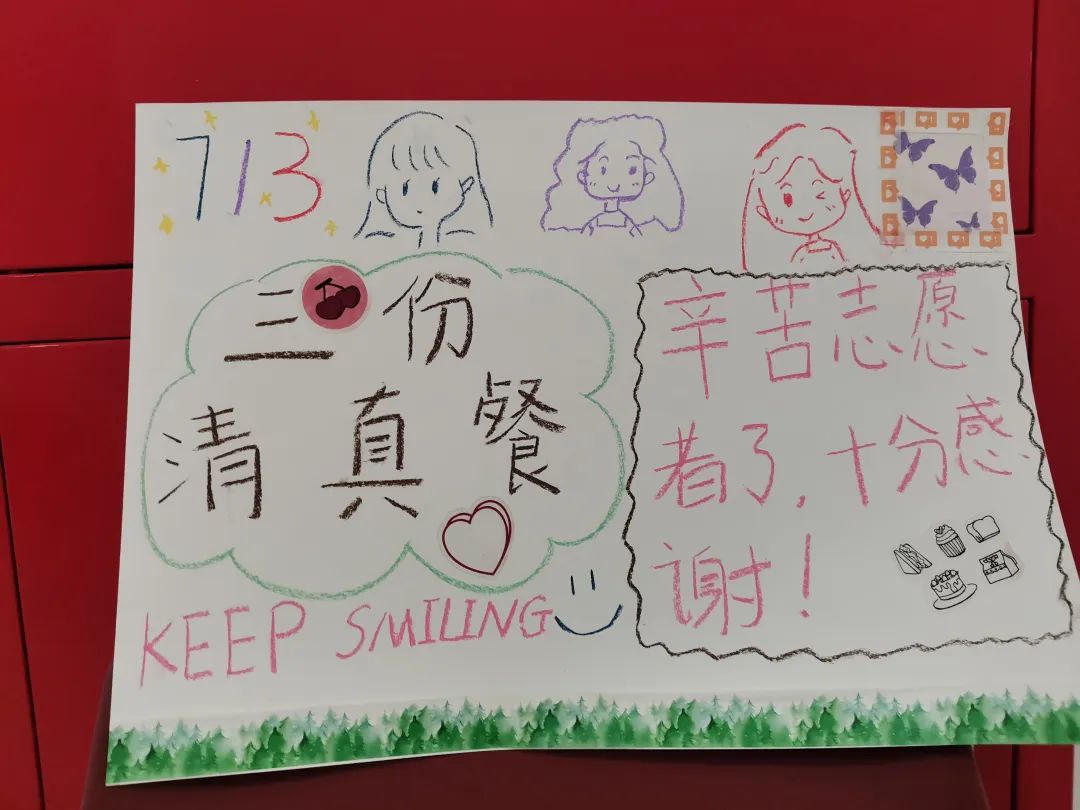 713
三份
清真餐
KEEP SMILING
辛苦志愿
者了,十分感
谢!